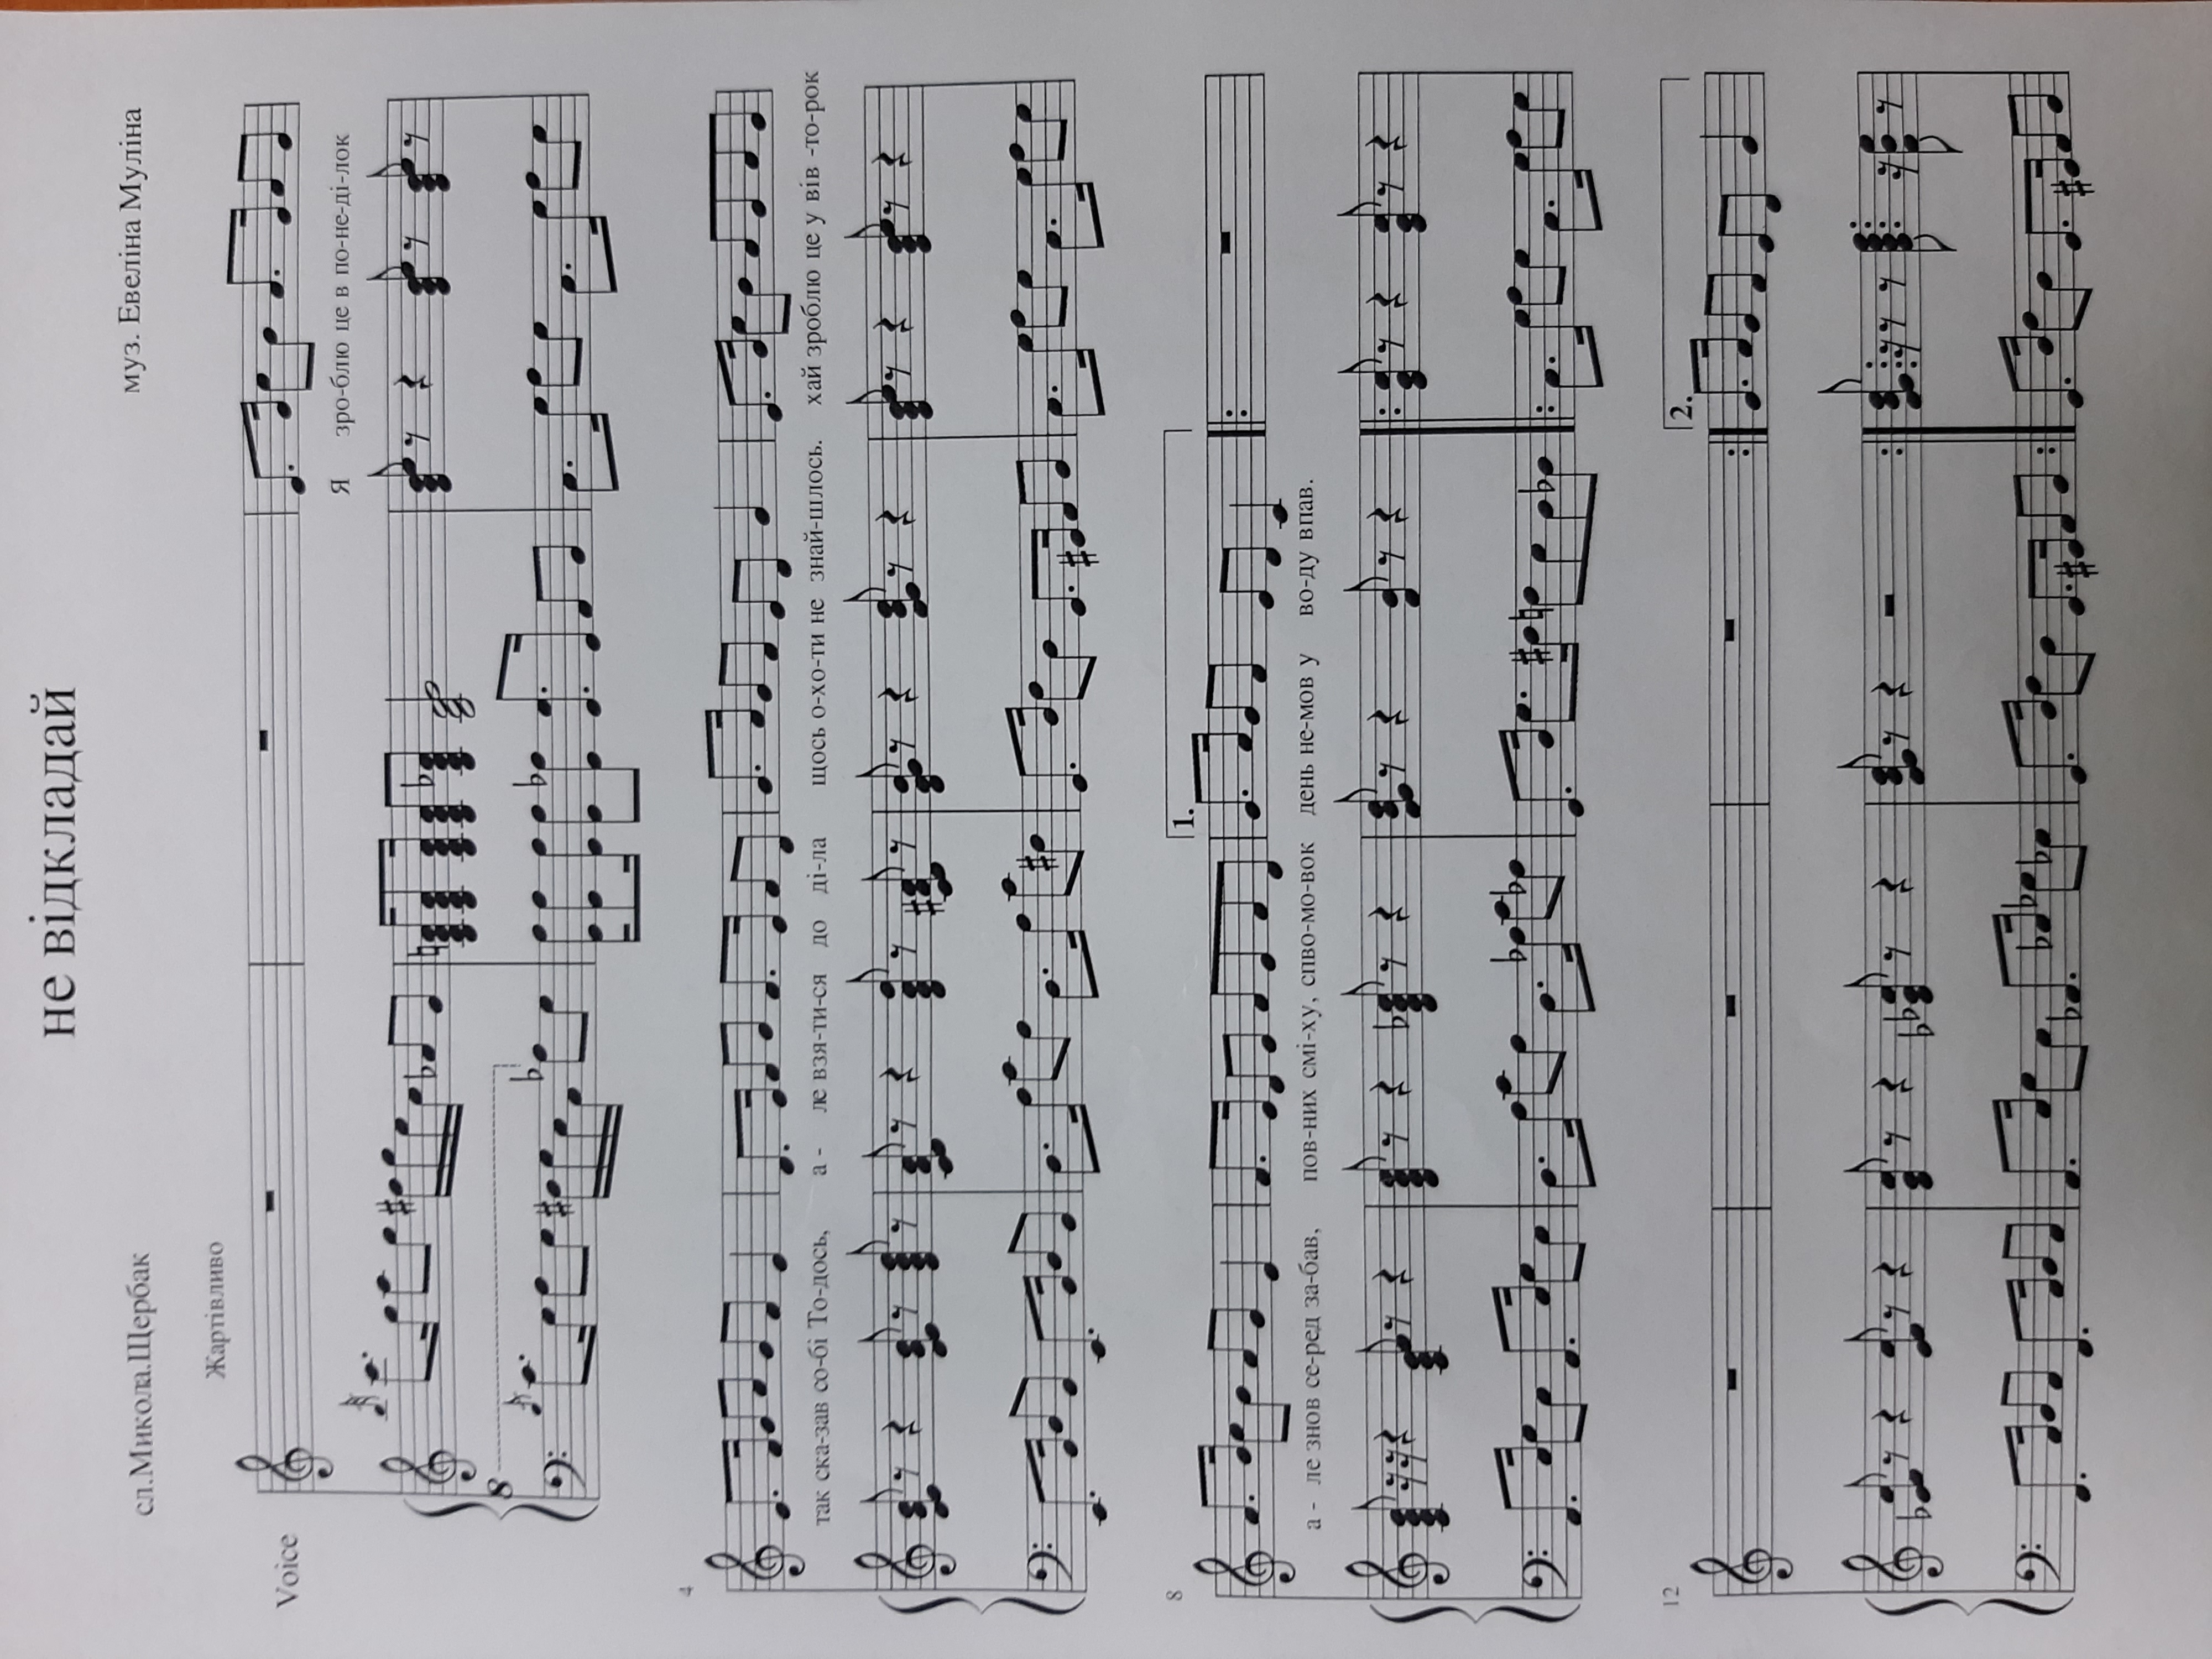 не відкладай
сл.Микола.Щербак
муз. Евеліна Муліна
Жартівливо
Voice
8
Я зро-блю це в по-не-ді-лок
4
так ска-зав со-бі То-дось, а - ле взя-ти-ся до ді-ла щось о-хо-ти не знай-шлось. хай зроблю це у вів -то-рок
8
1.
а - ле знов се-ред за-бав, пов-них смі-ху, спво-мо-вок день не-мов у во-ду впав.
12
2.